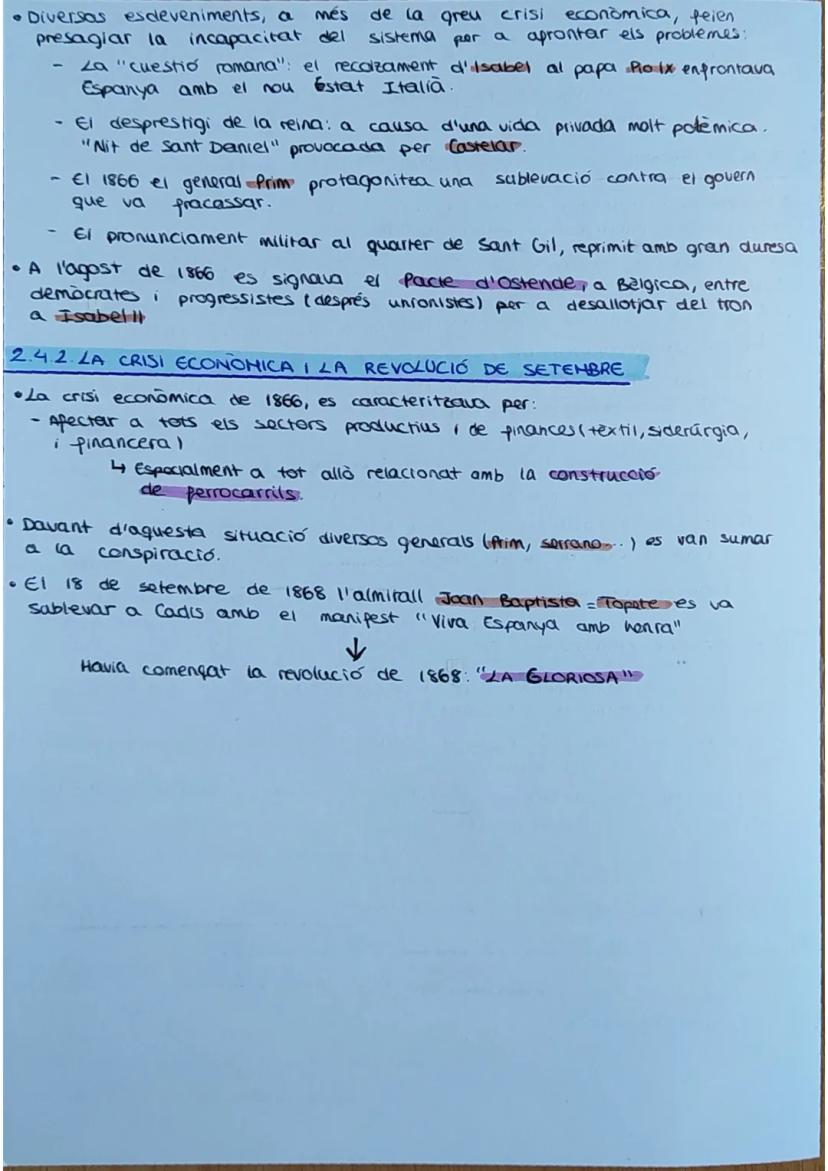 • Diversos esdeveniments, a més de la greu crisi econòmica, feien
presagiar la incapacitat del sistema per a afrontar els problemes:
- La "cuestió romana": el recolzament d'Isabel al papa Pio IX enfrontava
Espanya amb el nou Estat Italià.
- El desprestigi de la reina: a causa d'una vida privada molt polèmica.
"Nit de Sant Daniel" provocada per Castelar.
- El 1866 el general Prim protagonitza una sublevació contra el govern
que va fracassar.
- El pronunciament militar al quarter de Sant Gil, reprimit amb gran duresa
• A l'agost de 1866 es signava el Pacte d'Ostende, a Bèlgica, entre
demòcrates i progressistes (després unionistes) per a desallotjar del tron
a Isabel II
2.4.2. LA CRISI ECONÒMICA I LA REVOLUCIÓ DE SETEMBRE
• La crisi econòmica de 1866, es caracteritzava per:
- Afectar a tots els sectors productius i de finances (tèxtil, siderúrgia,
i financera)
↳ Especialment a tot allò relacionat amb la construcció
de ferrocarrils.
• Davant d'aquesta situació diversos generals (Prim, Serrano...) es van sumar
a la conspiració.
• El 18 de setembre de 1868 l'almirall Joan Baptista = Topete es va
sublevar a Cadis amb el manifest "Viva Espanya amb honra"
↓
Havia començat la revolució de 1868: "LA GLORIOSA"